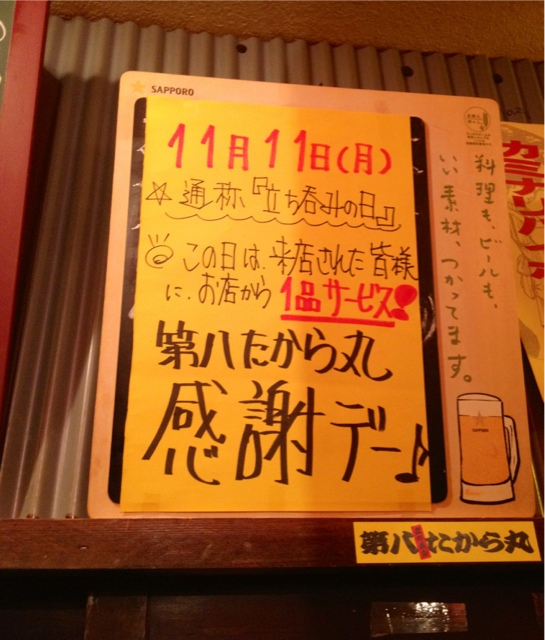 SAPPORO
11月11日(月)
☆通称『立ち呑みの日』
◎この日は、来店された皆様
に、お店から1品サービス!
第八たから丸
感謝デー♪
料理も、ビールも、
いい素材、つかってます。
SAPPORO
第八たから丸